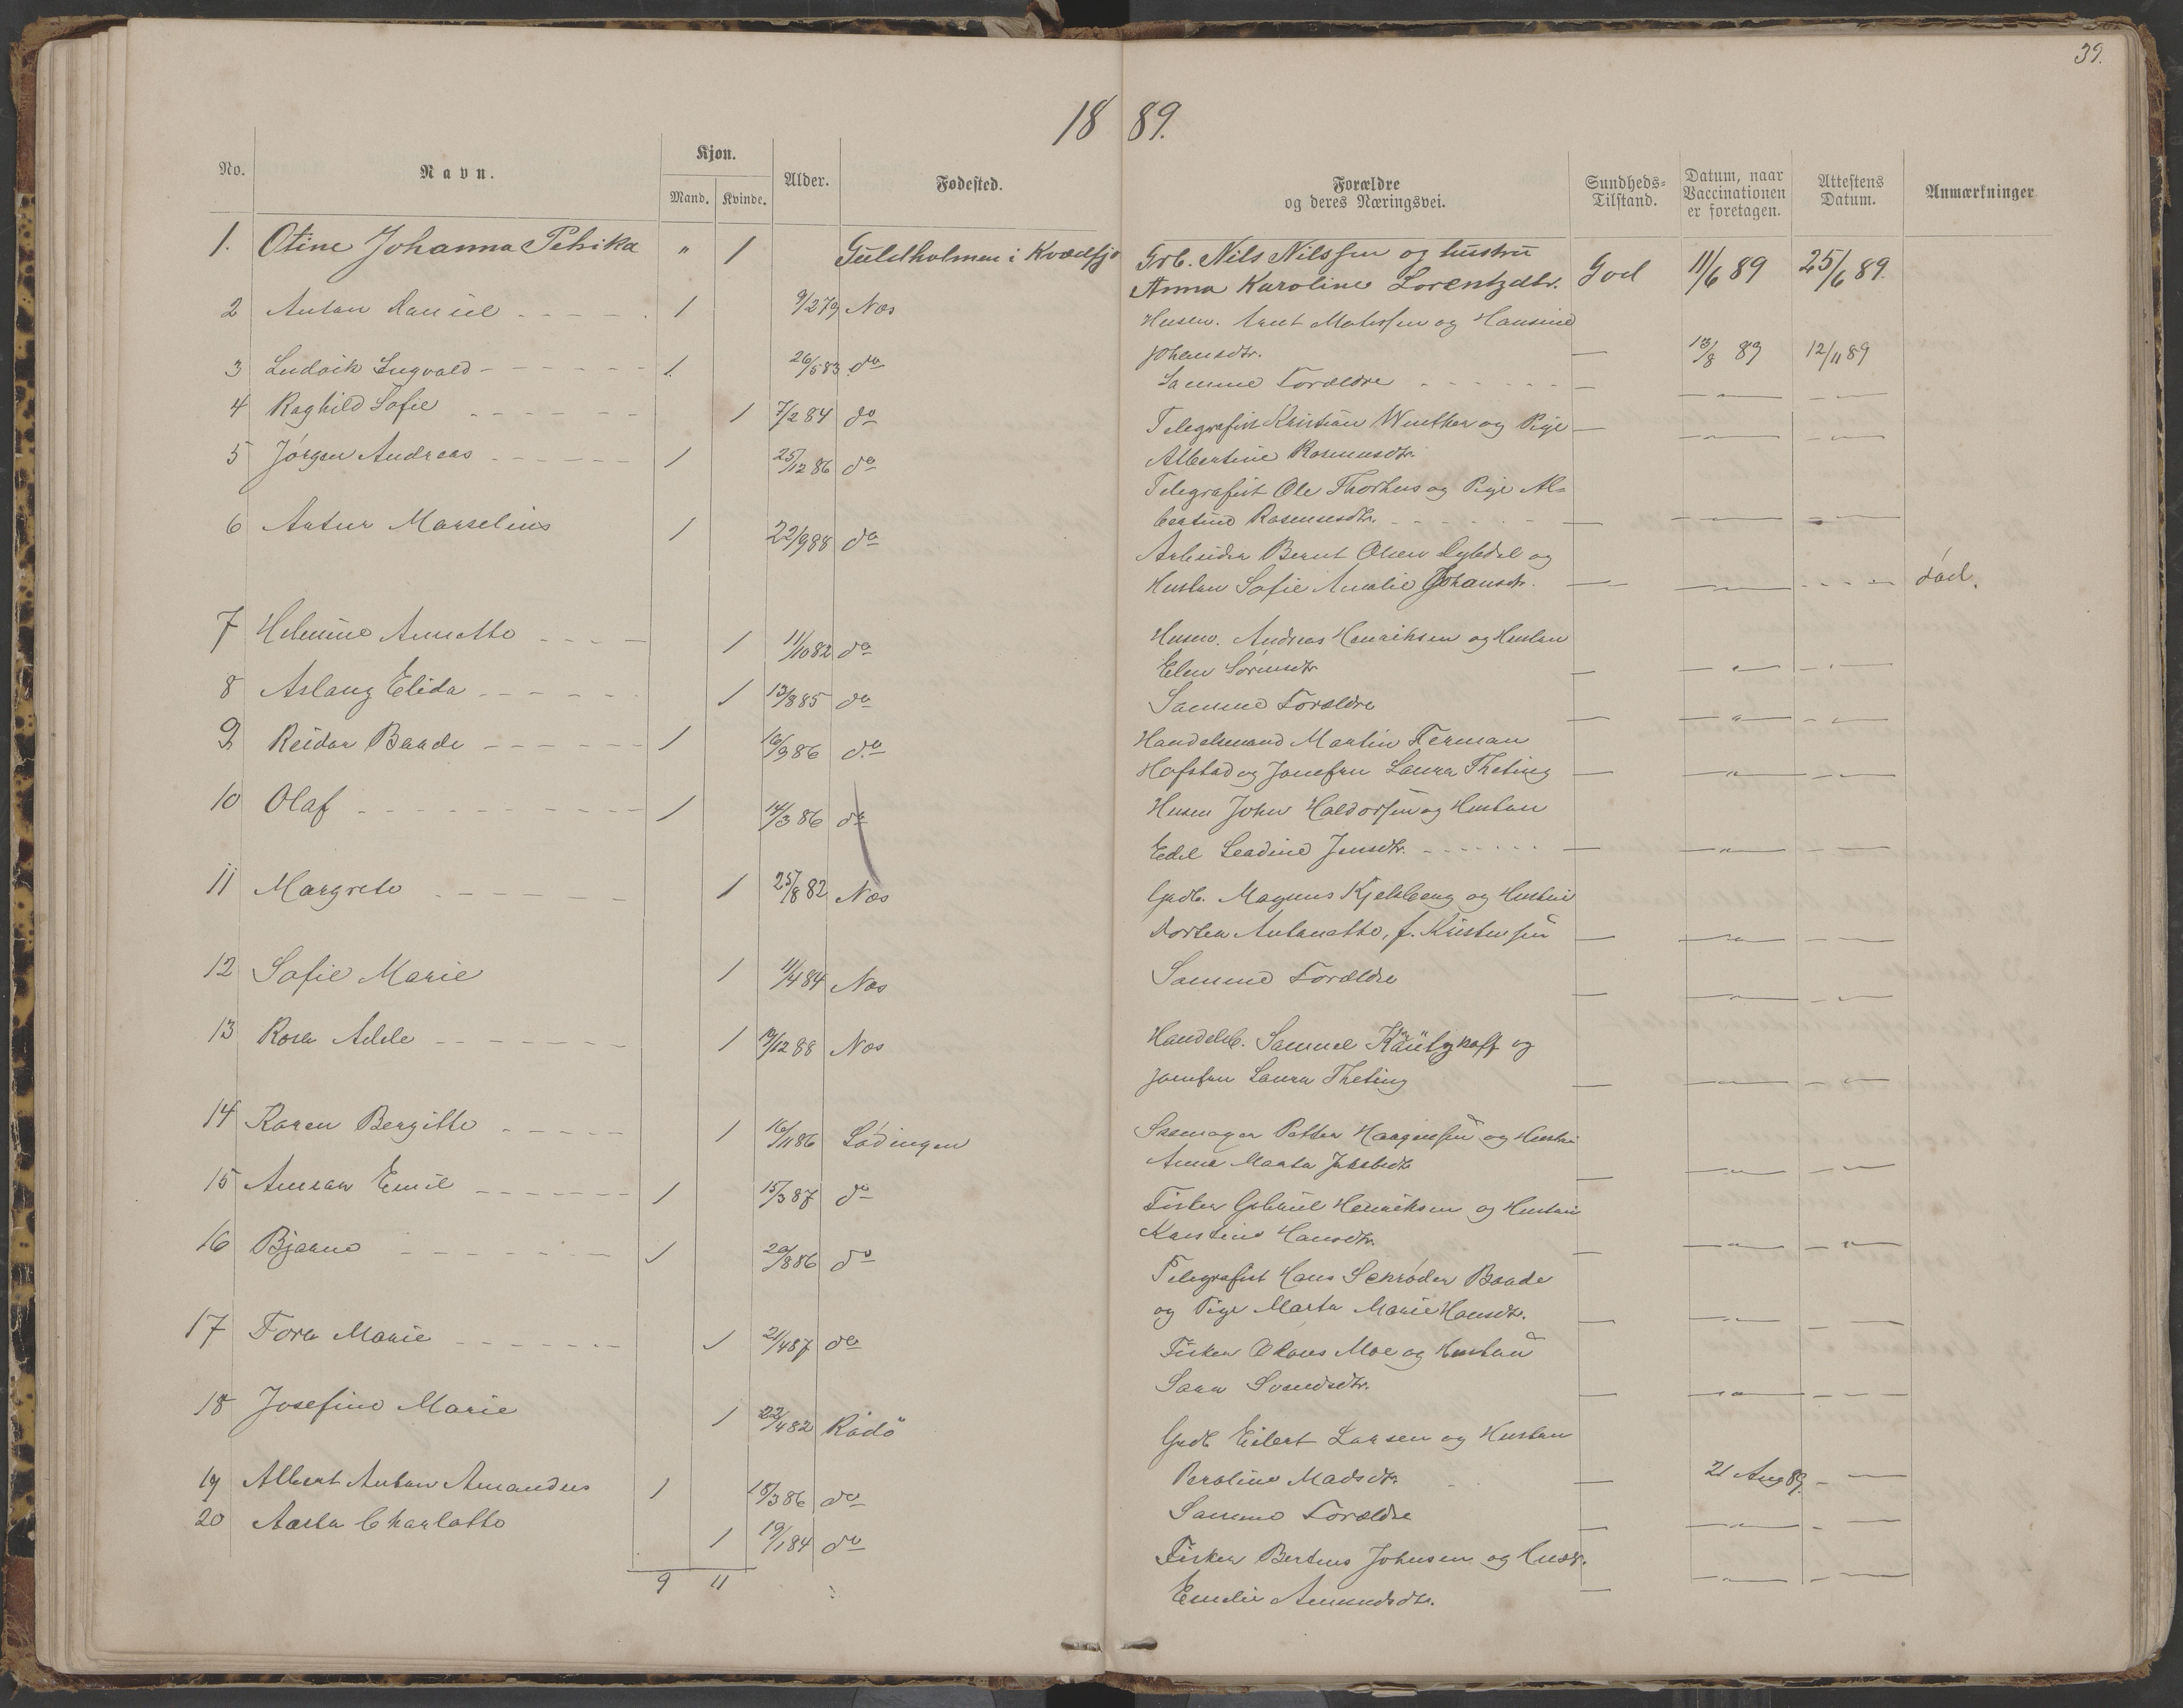 39.
18 89.
No. Navn. Kjøn. Alder. Fødested. Forældre Sundheds- Datum, naar Attestens Anmærkninger
Mand. Kvinde. og deres Næringsvei. Tilstand. Vaccinationen Datum.
er foretagen.
1. Otine Johanna Petrika " 1 Guldholmen i Kvædfjo Grb. Nils Nilssen og hustru
Anna Karoline Lorentzdtr. God 11/6 89 25/6 89.
2 Anton Daniel - - - - 1 9/2 79 Næs Husm. Arnt Matissen og Hansine
Johansdtr. — 13/8 89 12/11 89
3 Ludvik Ingvald - - - - - 1. 26/5 83 do Samme Forældre - - - - - — — " — — " —
4 Raghild Sofie - - - - - 1 7/2 84 do Telegrafist Kristian Winther og Pige — — " — — " —
Albertine Rasmusdtr.
5 Jørgen Andreas - - - - - 1 25/12 86 do Telegrafist Ole Thorhus og Pige Al-
bertine Rasmusdtr. - - - - - — — " — — " —
6 Artur Marselius 1 22/9 88 do Arbeider Bernt Olsen Dybdal og
Hustru Sofie Amalie Johansdtr. — — " — - - - død.
7 Helmine Annette - - - 1 11/10 82 do Husm. Andreas Henriksen og Hustru
Elen Sørensdtr — — " — — " —
8 Aslaug Elida - - - - 1 13/8 85 do Samme Forældre — — " — — " —
9 Reidar Baade - - - - - 1 16/9 86 do Handelsmand Martin Ferman
Hofstad og Jomfru Laura Theting — — " — — " —
10 Olaf - - - - - - - - 1 14/3 86 do Husm John Haldorsen og Hustru
Edel Leadine Jensdtr. - - - - - — — " — — —
11 Margrete - - - - - 1 25/8 82 Næs Grdb. Magnus Kjelsberg og Hustru
Dortea Antonette, f. Kristensen — — " — — —
12 Sofie Marie 1 11/4 84 Næs Samme Forældre — — " — — —
13 Rosa Adele - - - - - - 1 19/12 88 Næs Handelsb. Samuel
Jomfru Laura Theting — — " — — " —
14 Karen Bergitte - - - - 1 16/11 86 Lødingen Skomager Petter Haagensen og Hustru
Anna Marta Jakobsdtr — — " — — " —
15 Emil - - - - - 1 15/3 87 do Fisker Gabriel Henriksen og Hustru
Karstine Hansdtr. — — " — — " —
16 Bjarne - - - - - - 1 20/8 86 do Telegrafist Hans Schrøder Baade
og Pige Marta Marie Hansdtr. — — " — — —
17 Tora Marie - - - - - 1 21/4 87 do Fisker Claus Moe og Hustru
Sara Svendsdtr. — — " — — —
18 Josefine Marie 1 22/4 82 Rødø Grdb Eilert Larsen og Hustru
Peroline Madsdtr. - — 21 Aug 89. - —
19 Albert Anton Amandus 1 18/3 86 do Samme Forældre — — " — - —
20 Aasta Charlotte 1 19/1 84 do Fisker Bertius Johnsen og Hustr.
Emilie Amundsdtr. — — " — - —
9 11